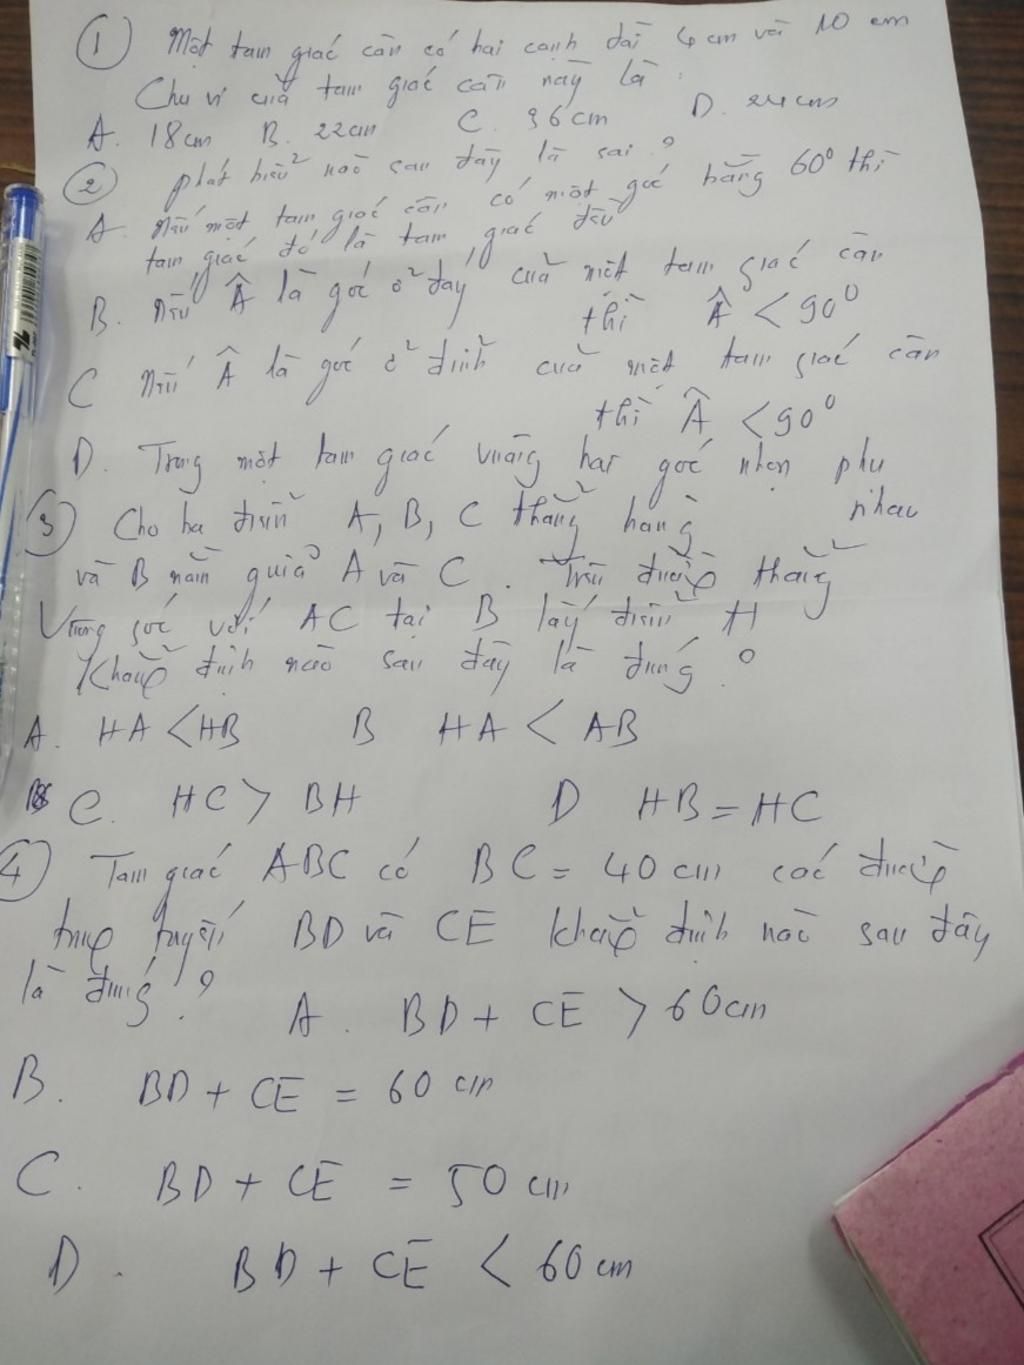 1 Một tam giác cân có hai cạnh dài 4 cm và 10 cm
Chu vi của tam giác cân này là :
A. 18cm B. 22cm C. 36cm D. 24cm
2 phát biểu nào sau đây là sai ?
A. Nếu một tam giác cân có một góc bằng 60° thì
tam giác đó là tam giác đều
B. Nếu Â là góc ở đáy của một tam giác cân
thì Â < 90°
C Nếu Â là góc ở đỉnh của một tam giác cân
thì Â < 90°
D. Trong một tam giác vuông hai góc nhọn phụ
nhau
3 Cho ba điểm A, B, C thẳng hàng
và B nằm giữa A và C. Trên đường thẳng
Vuông góc với AC tại B lấy điểm H
Khẳng định nào sau đây là đúng ?
A. HA < HB B HA < AB
C. HC > BH D HB = HC
4 Tam giác ABC có BC = 40 cm các đường
trung tuyến BD và CE Khẳng định nào sau đây
là đúng ?
A. BD + CE > 60cm
B. BD + CE = 60 cm
C. BD + CE = 50 cm
D. BD + CE < 60 cm